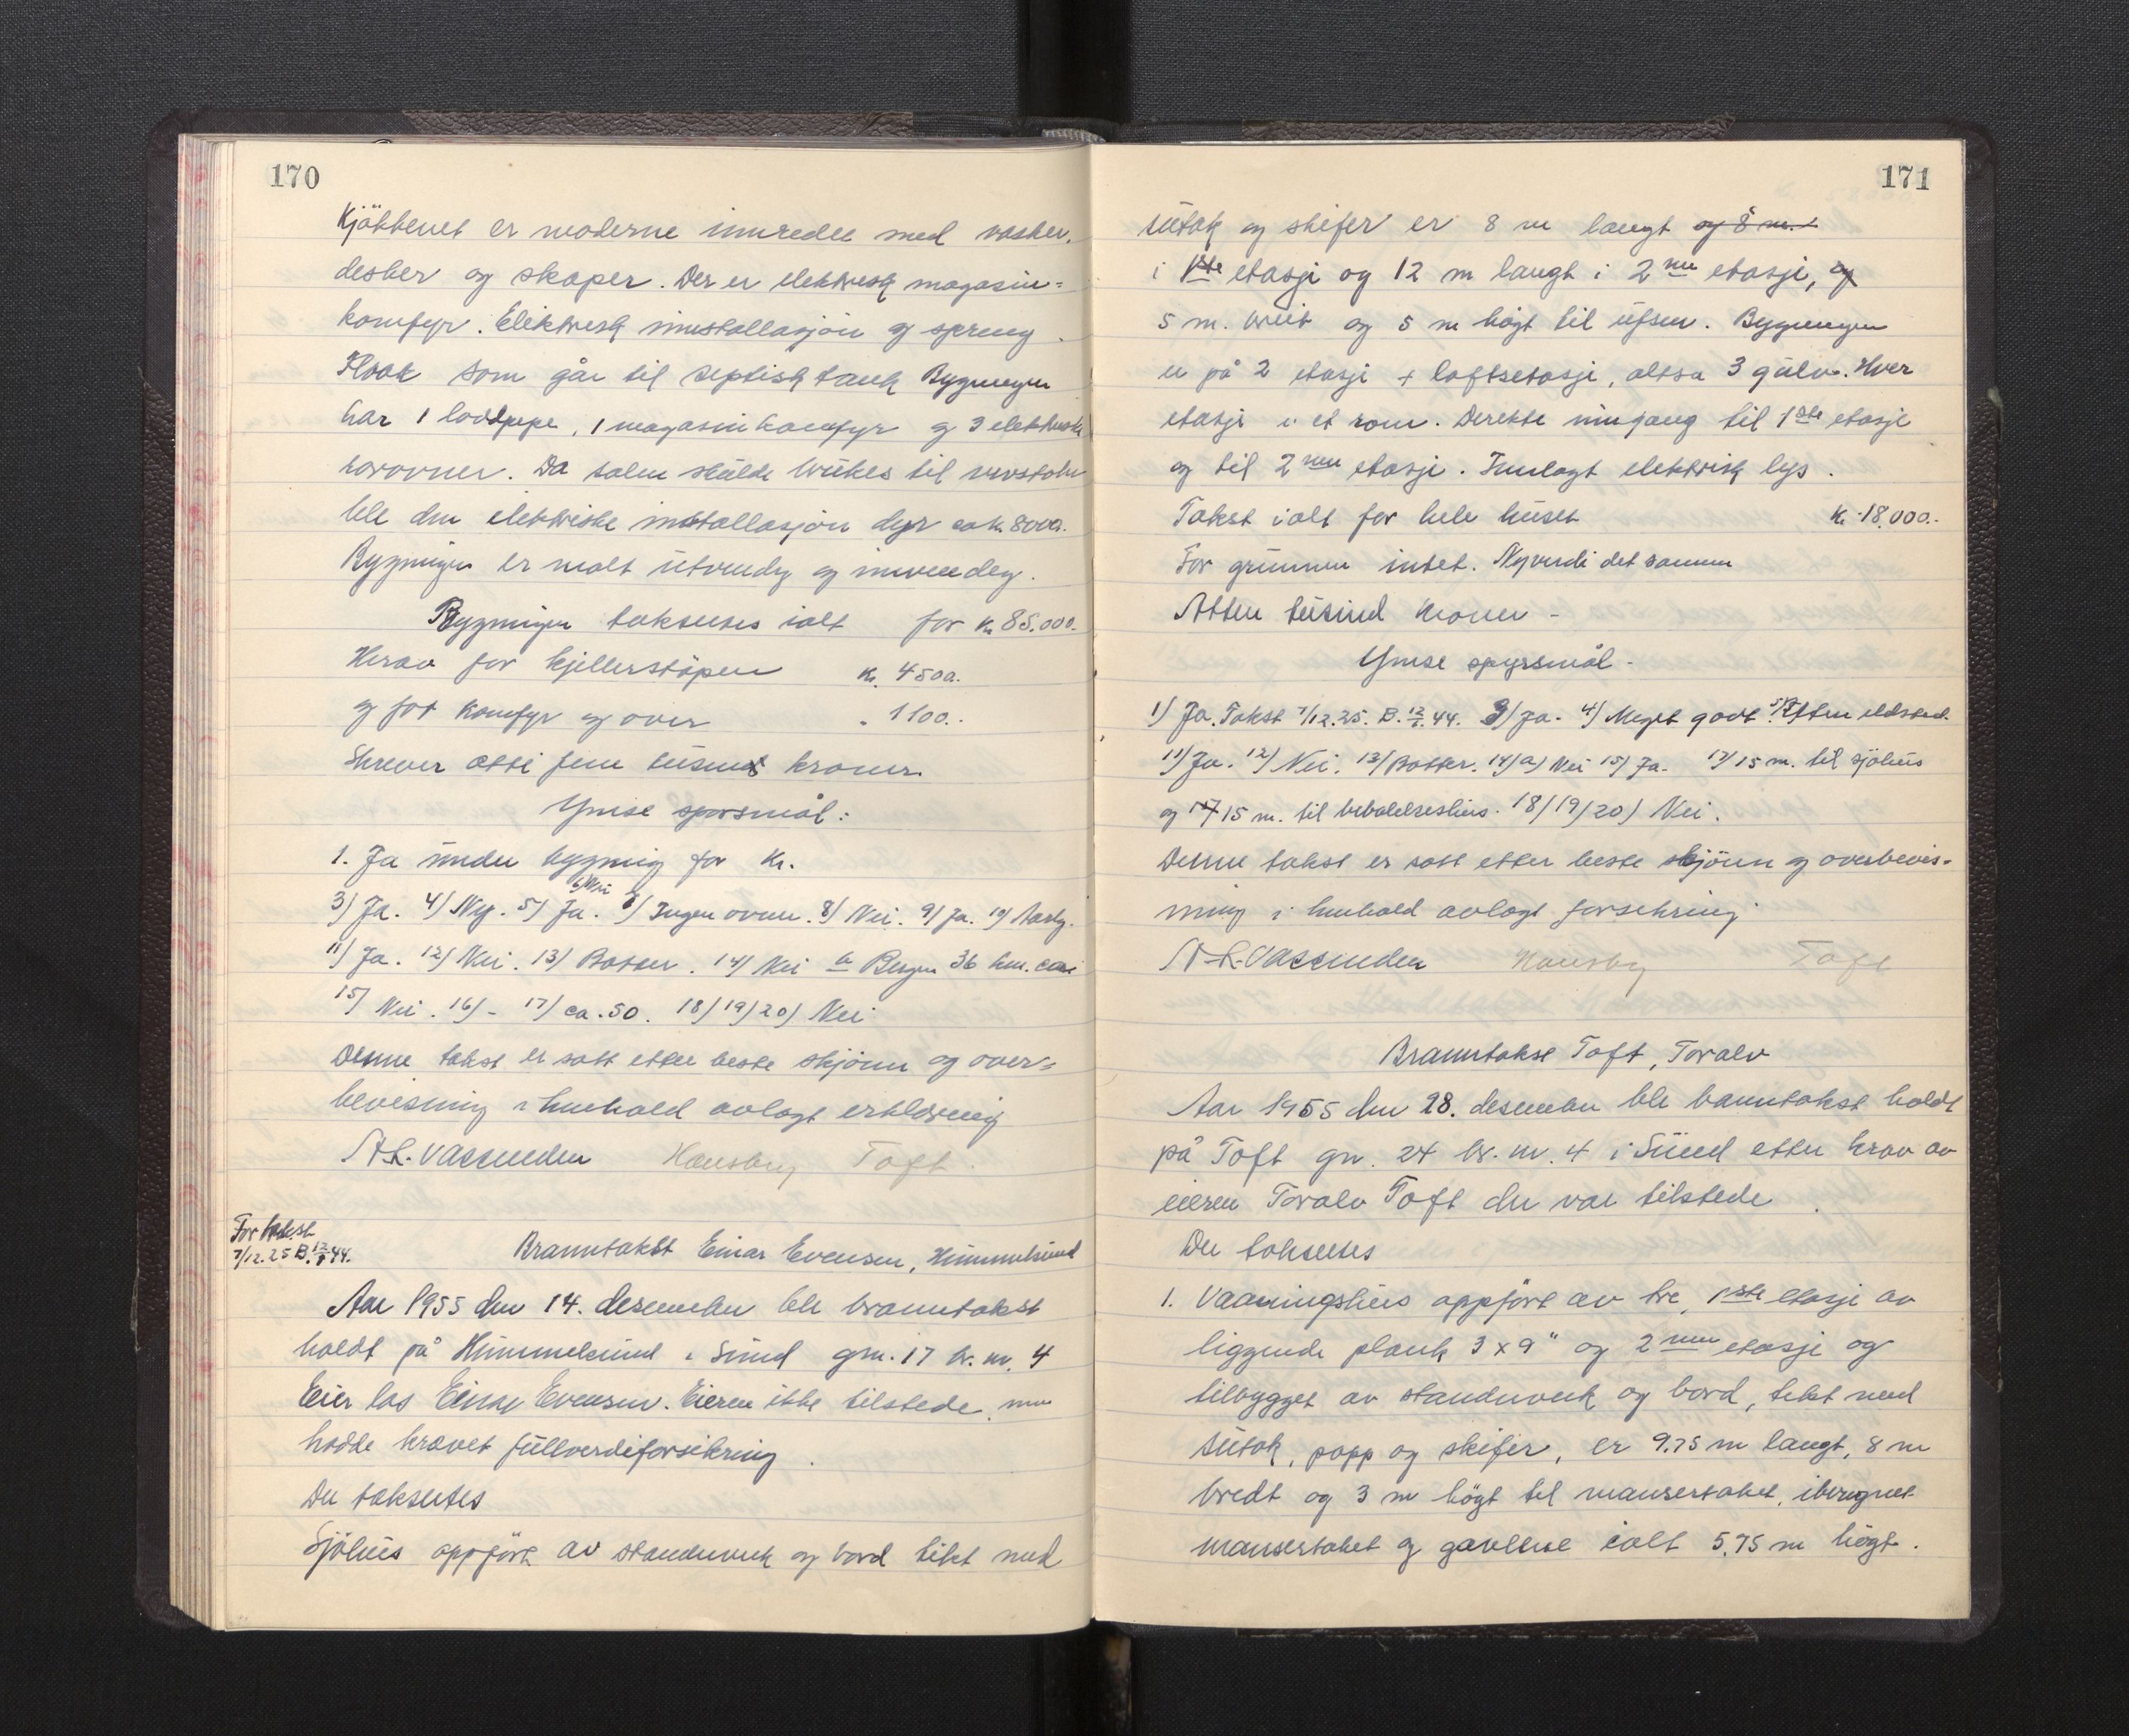 170
Kjökkenet er moderne innredet med vasker,
desker og skaper. Der er elektrisk magasin=
komfyr. Elektrisk innstallasjon og spreng.
Kloak som går til septisk tank Bygningen
har 1 loddpipe, 1 magasinkomfyr og 3 elektrisk
Da salen skulde brukes til
ble den elektriske installasjon dyr ca kr. 8000.
Bygningen er malt utvendig og innvendig.
Bygningen takseres ialt for kr. 85.000.-
Herav for kjellerstöpen kr. 4500.
og for komfyr og over " 1100.-
Skriver otti fem tusind kroner.
Ymse sporsmål:
1. Ja under bygging for kr.
6) Nei
3) Ja. 4) Ny. 5) Ja. 7) Ingen ovner. 8) Nei. 9) Ja. 10)
11) Ja. 12) Nei. 13) Botser. 14) Nei a Bergen 36 km.
15) Nei. 16) - 17) ca. 50. 18/19/20) Nei
Denne takst er satt etter beste skjönn og over=
bevisning i henhold avlagt erklæring
Hausberg Toft.
For takst
7/12.25 B. 12/8 44.
Branntakst Einar Evensen, Himmelsund
Aar 1955 den 14. desember ble branntakst
holdt på Himmelsund i Sund grn. 17 br. nr. 4
Eier las Einar Evensen. Eieren ikke tilstede men
hadde kravet fullverdiforsikring.
Der takseres
Sjöhus oppfört av standerverk og bord tekt med
171
sutak og skifer er 8 m langt og 8 m.
i 1ste etasje og 12 m langt i 2nen etasje, og
5 m. breit og 5 m högt til ufsen. Bygningen
er på 2 etasje + loftsetasje, altsa 3 gulv. Hver
etasje er et rom. Derekte inngang til 1ste etasje
og til 2nen etasje. Innlagt elektrisk lys.
Takst ialt for hele huset kr. 18.000.-
For grunnen intet. Nyverdi det samme
Atten tusind kroner -
Ymse spyrsmål -
1) Ja. Takst 7/12.25. B. 12/8. 44. 3) Ja. 4) Meget godt. 5) Uten eldsted.
11) Ja. 12) Nei. 13) Botser. 14) a) Nei 15) Ja. 17) 15 m. til sjöhus
og 17) 15 m. til bebolelseshus. 18/19/20) Nei.
Denne takst er satt etter beste skjönn og overbevis-
ning i henhold avlagt forsikring
Hausberg Toft
Branntakst Toft, Toralv
Aar 1955 den 28. desember ble branntakst holdt
på Toft gn. 24 br. nr. 4 i Sund etter krav av
eieren Toralv Toft der var tilstede.
Der takseres
1. Vaaningshus oppfört av tre, 1ste etasje av
liggende plank 3 x 9" og 2nen etasje og
tilbygget av standerverk og bord, tekt med
sutak, papp og skifer, er 9.75 m langt, 8 m
bredt og 3 m högt til mansertaket, iberegnet
mansertaket og gavlene ialt 5,75 m högt.